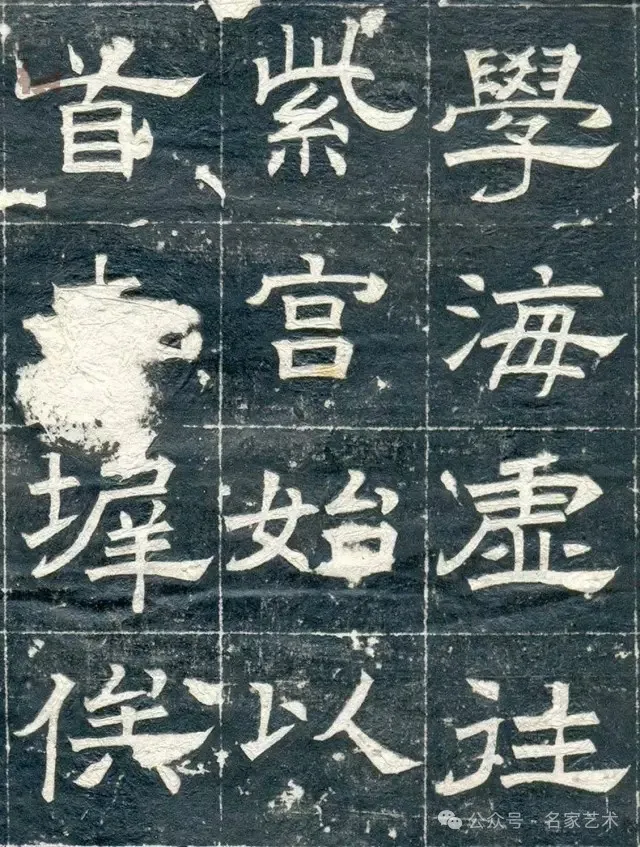 學海虛往
紫宮始以
首墀俟
公众号 · 名家艺术